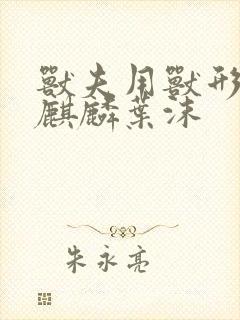 獸夫用獸形
麒麟葉沫
朱永亮